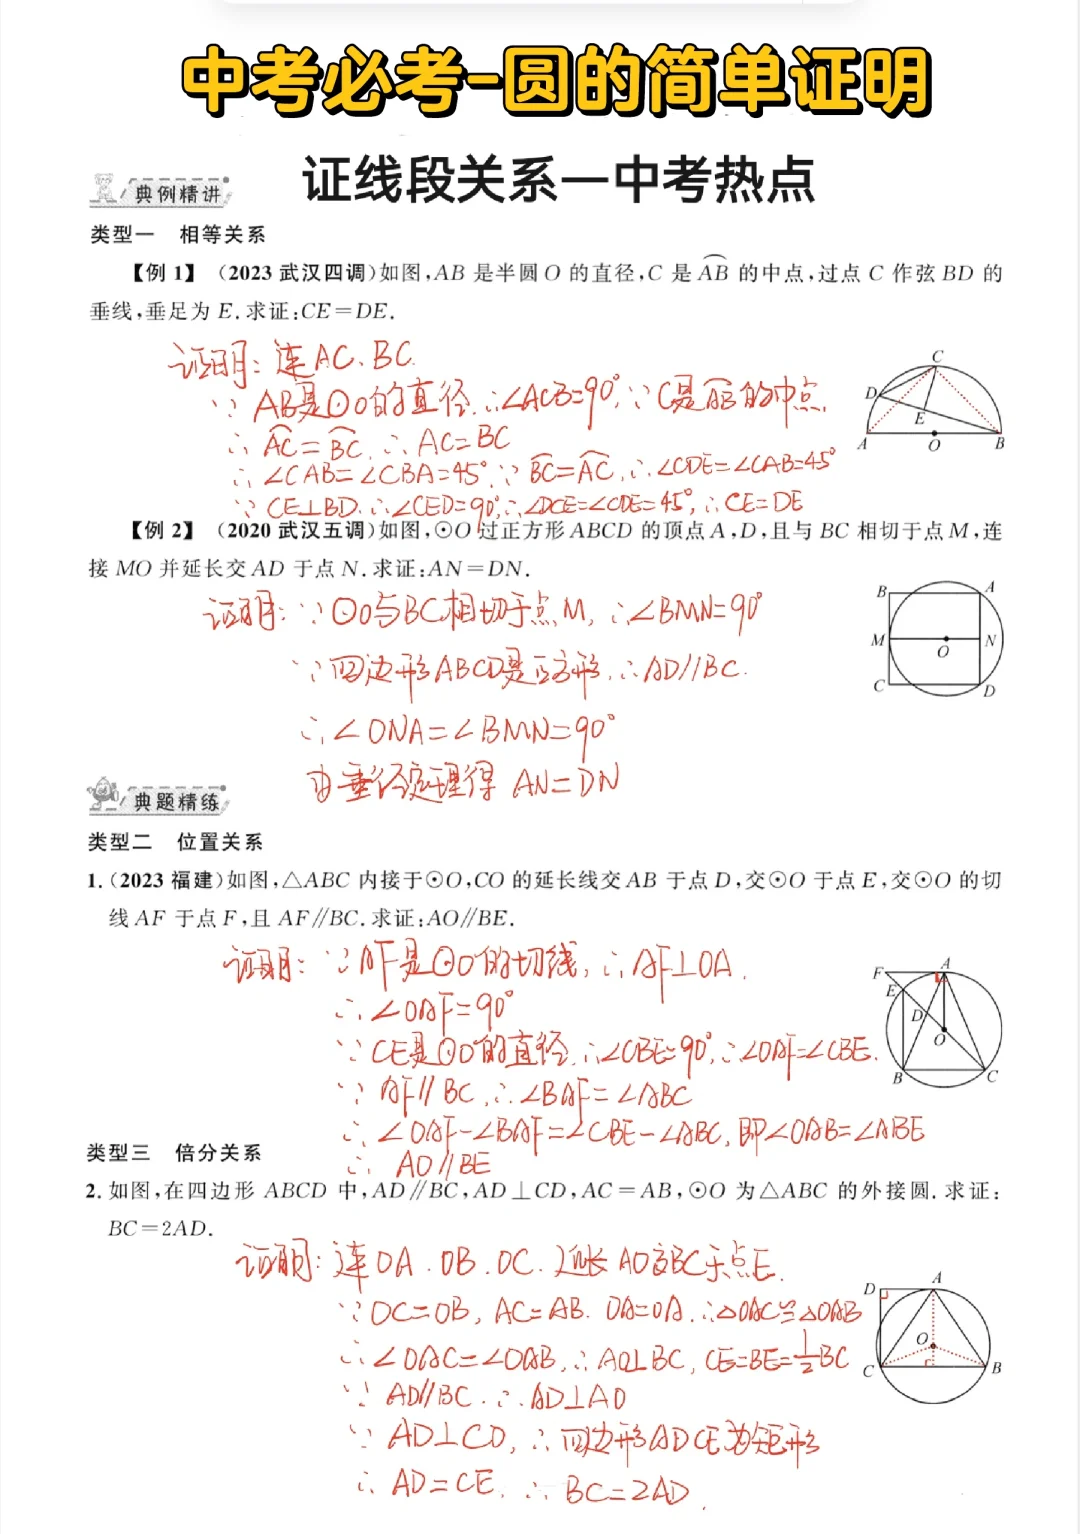 中考必考-圆的简单证明
证线段关系一中考热点
典例精讲
类型一 相等关系
【例1】(2023武汉四调)如图,AB是半圆O的直径,C是AB的中点,过点C作弦BD的
垂线,垂足为E.求证:CE=DE.
证明:连AC、BC.
∵AB是⊙O的直径,∴∠ACB=90°,∵C是AB的中点
∴AC=BC,∴AC=BC
∴∠CAB=∠CBA=45°,∵BC=AC,∴∠CDE=∠CAB=45°
∵CE⊥BD,∴∠CED=90°,∴∠DCE=∠CDE=45°,∴CE=DE
C
D
E
A
O
B
【例2】(2020武汉五调)如图,⊙O过正方形ABCD的顶点A,D,且与BC相切于点M,连
接MO并延长交AD于点N.求证:AN=DN.
证明:∵⊙O与BC相切于点M,∴∠BMN=90°
∵四边形ABCD是正方形,∴AD∥BC.
∴∠ONA=∠BMN=90°
由垂径定理得 AN=DN
B
A
M
O
N
C
D
典题精练
类型二 位置关系
1.(2023福建)如图,△ABC内接于⊙O,CO的延长线交AB于点D,交⊙O于点E,交⊙O的切
线AF于点F,且AF∥BC.求证:AO∥BE.
证明:∵AF是⊙O的切线,∴AF⊥OA.
∴∠OAF=90°
∵CE是⊙O的直径,∴∠CBE=90°,∴∠OAF=∠CBE.
∵AF∥BC,∴∠BAF=∠ABC
∴∠OAF-∠BAF=∠CBE-∠ABC,即∠OAB=∠ABE
∴AO∥BE
F
A
E
D
O
B
C
类型三 倍分关系
2.如图,在四边形ABCD中,AD∥BC,AD⊥CD,AC=AB,⊙O为△ABC的外接圆.求证:
BC=2AD.
证明:连OA.OB.OC.延长AO交BC于点E.
∵OC=OB,AC=AB.OA=OA.∴△OAC≌△OAB
∴∠OAC=∠OAB,∴AO⊥BC,CE=BE=1/2BC
∵AD∥BC.∴AD⊥AO
∵AD⊥CD,∴四边形ADCE为矩形
∴AD=CE.∴BC=2AD.
D
A
O
C
B